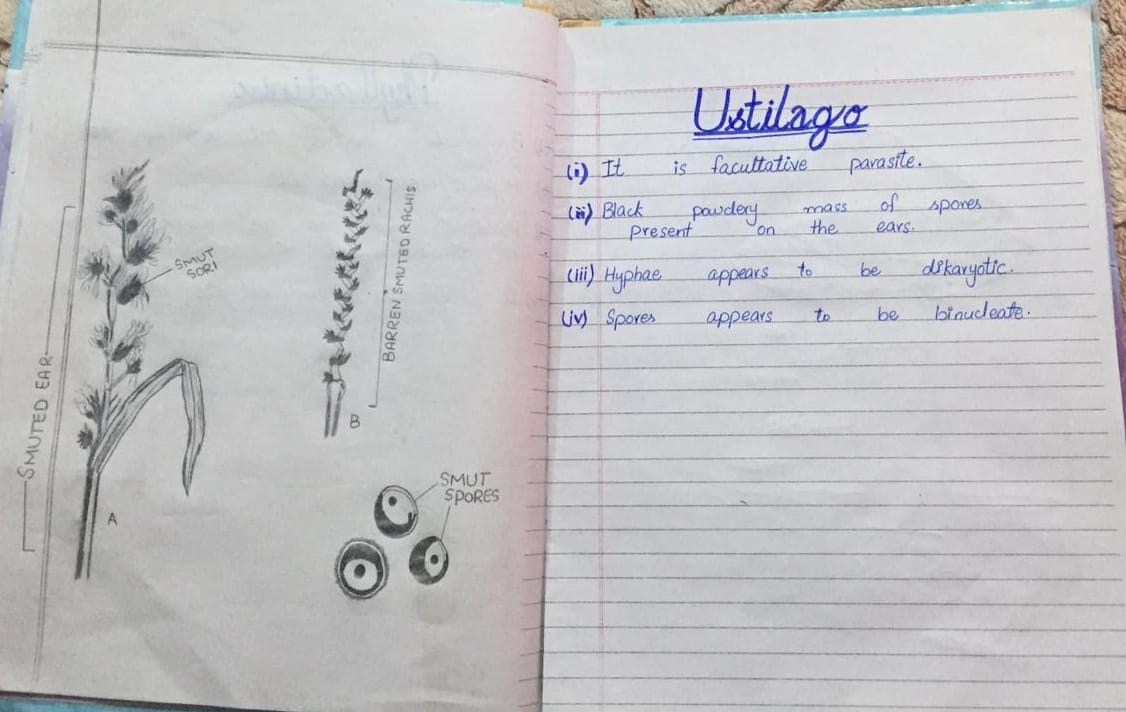 SMUTED EAR
SMUT
SORI
A
BARREN SMUTED RACHIS
B
SMUT
SPORES
Ustilago
(i) It is facultative parasite.
(ii) Black powdery mass of spores
present on the ears.
(iii) Hyphae appears to be dikaryotic.
(iv) Spores appears to be binucleate.